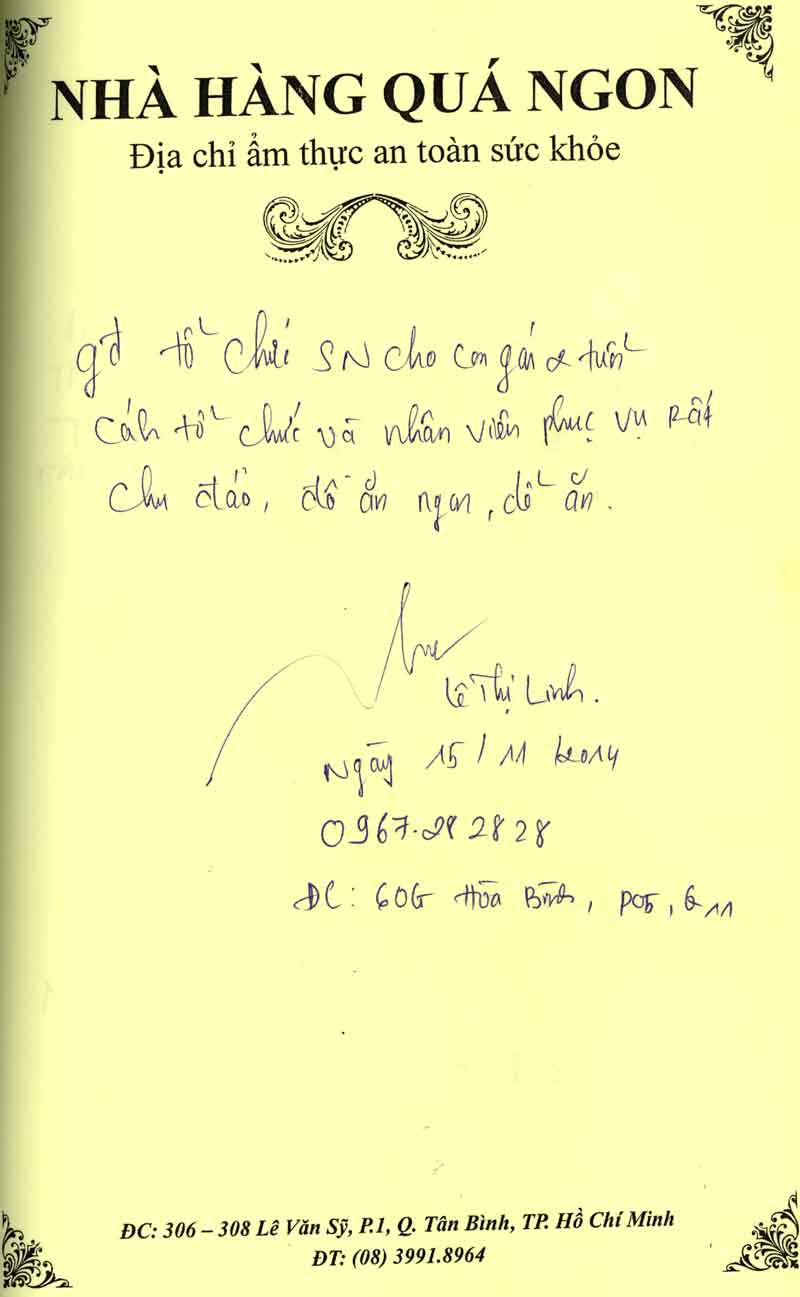 NHÀ HÀNG QUÁ NGON
Địa chỉ ẩm thực an toàn sức khỏe
gđ tổ chức SN cho con gái 2 tuổi
Cách tổ chức và nhân viên phục vụ rất
chu đáo, đồ ăn ngon, dễ ăn.
Lê Thị Linh.
Ngày 15/11/2014
ĐC: 60G Hòa Bình, P05, Q11
ĐC: 306 – 308 Lê Văn Sỹ, P.1, Q. Tân Bình, TP. Hồ Chí Minh
ĐT: (08) 3991.8964